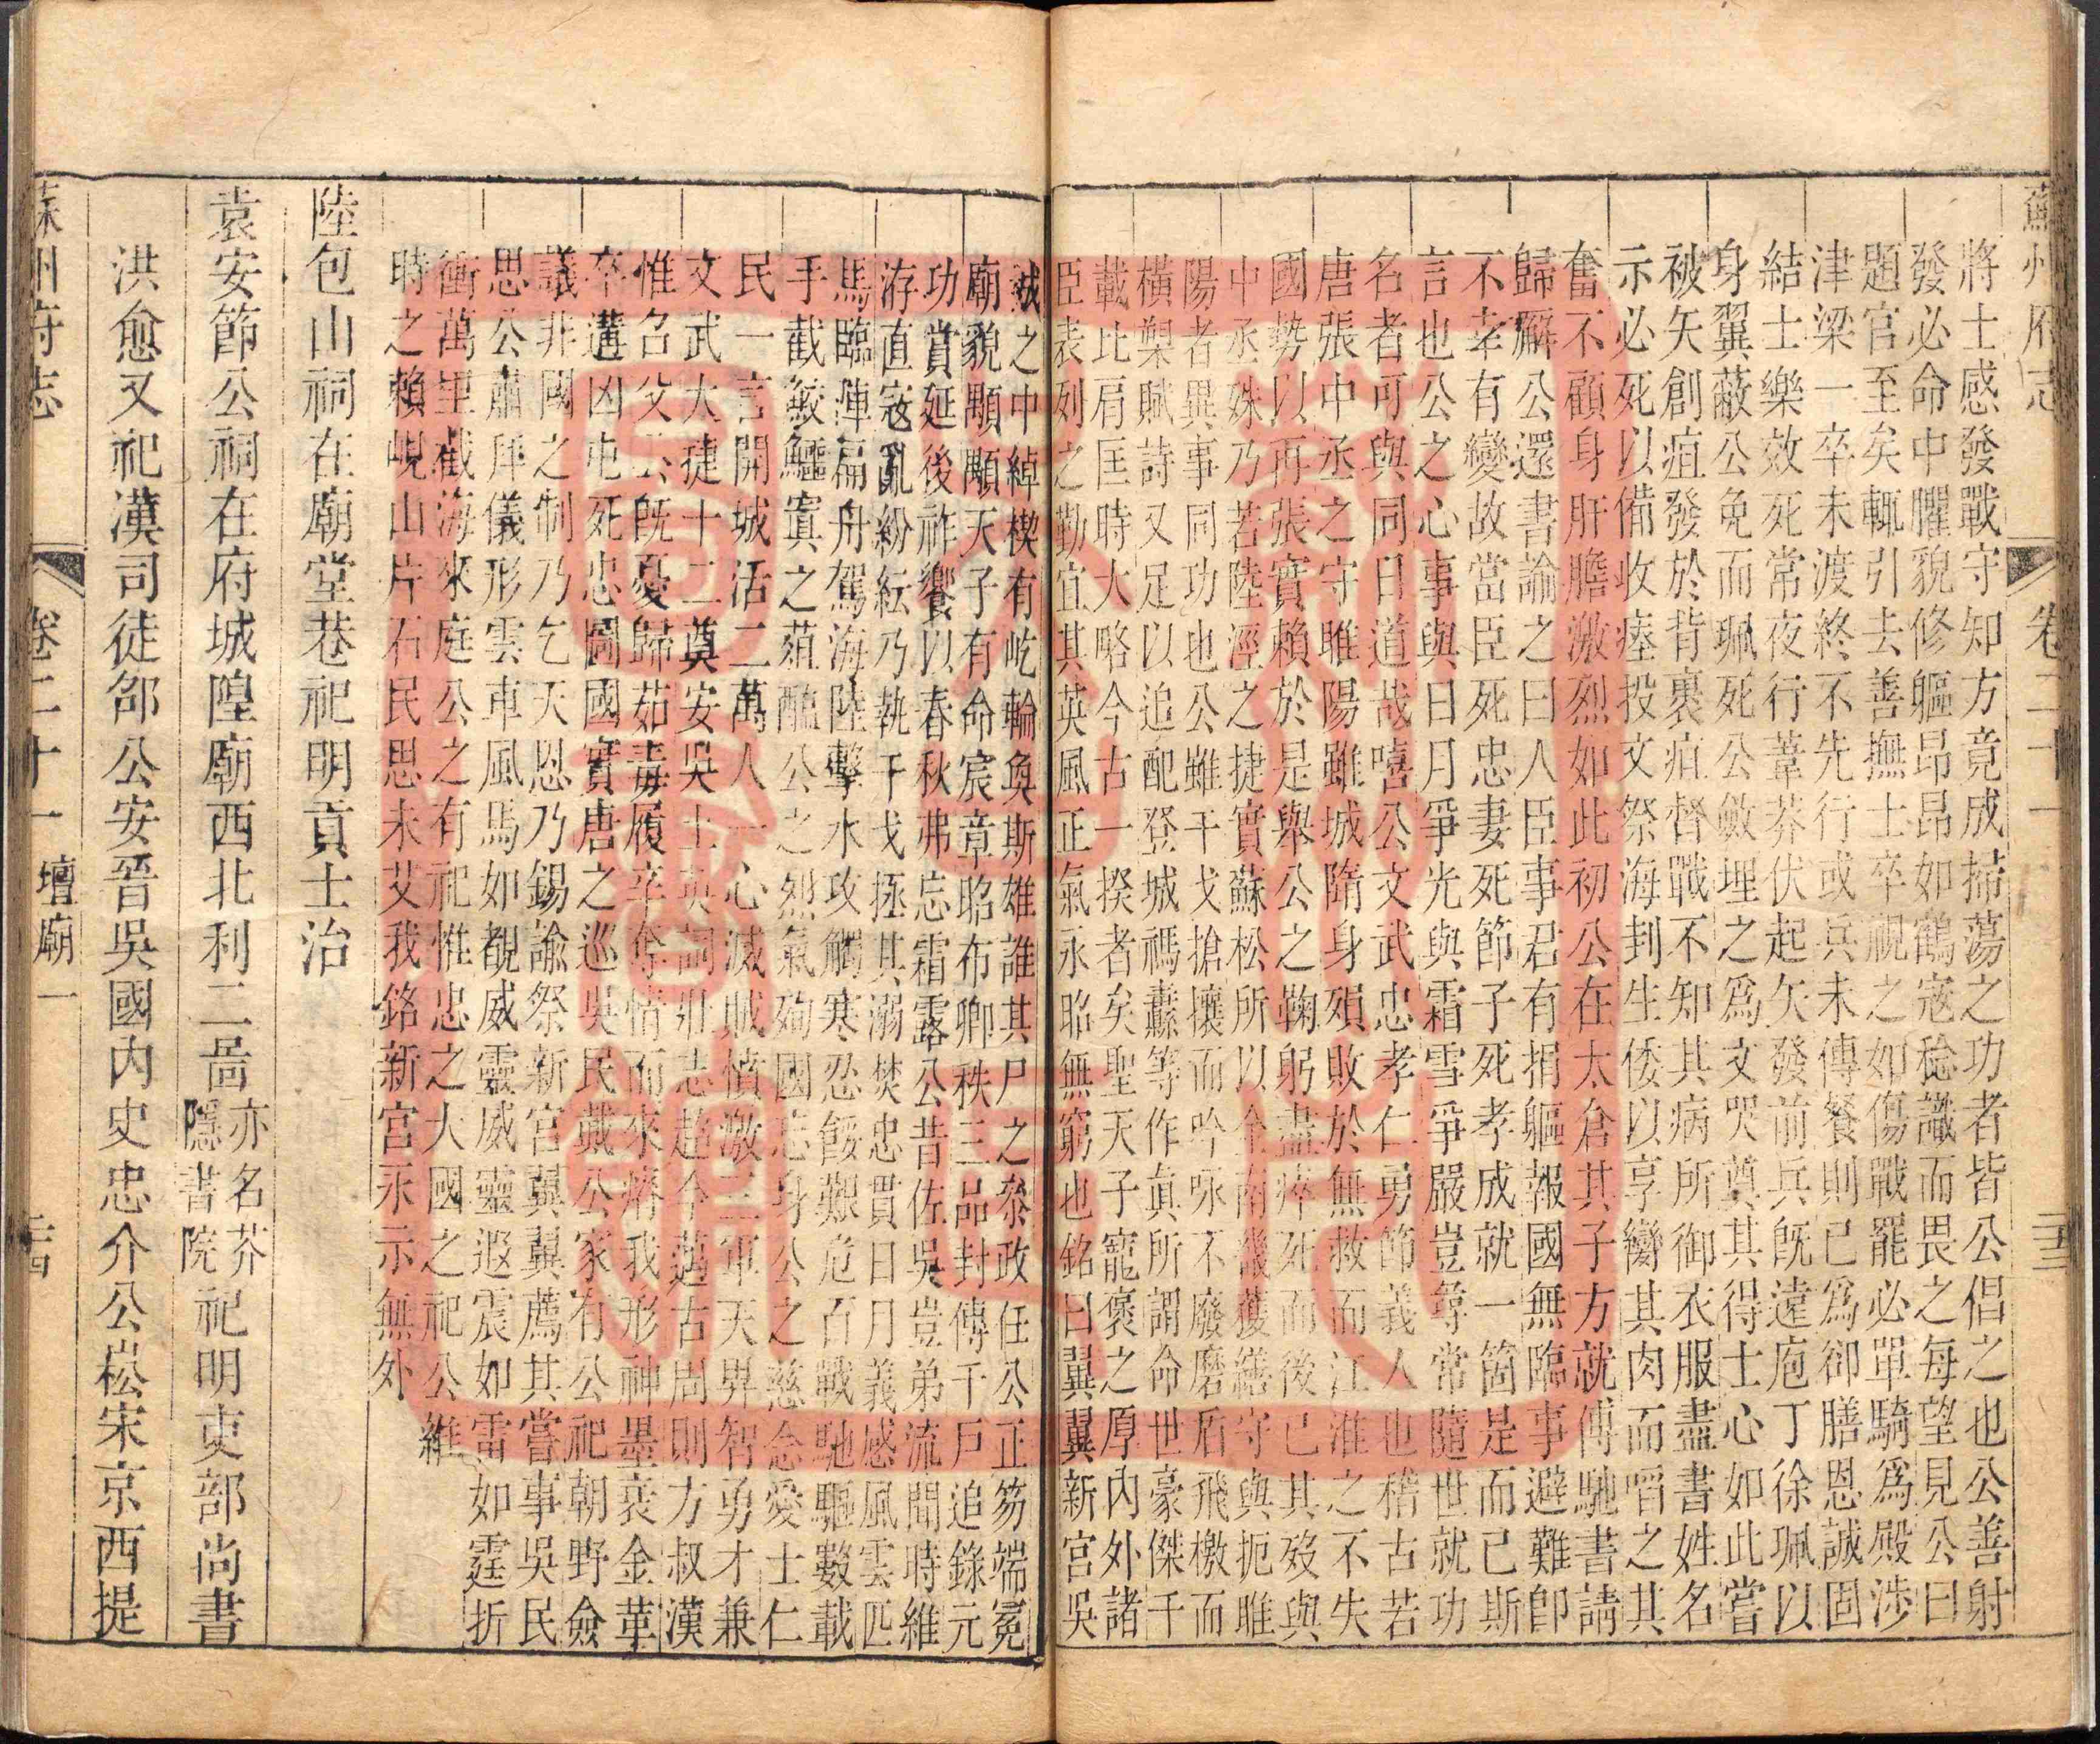 蘇州府志 卷二十一 二十三
將士感發戰守知方竟成掃蕩之功者皆公倡之也公善射
發必命中臞貌修軀昂昂如鶴寇稔識而畏之每望見公曰
題官至矣輒引去善撫士卒視之如傷戰罷必單騎爲殿涉
津梁一卒未渡終不先行或兵未傳餐則已爲卻膳恩誠固
結士樂效死常夜行葦莽伏起矢發前兵旣遠庖丁徐珮以
身翼蔽公免而珮死公斂埋之爲文哭奠其得士心如此嘗
被矢創疽發於背裹疽督戰不知其病所御衣服盡書姓名
示必死以備收瘞投文祭海刲生倭以享臠其肉而啗之其
奮不顧身肝膽激烈如此初公在太倉其子方就傅馳書請
歸廨公還書諭之曰人臣事君有捐軀報國無臨事避難卽
不幸有變故當臣死忠妻死節子死孝成就一箇是而已斯
言也公之心事與日月爭光與霜雪爭嚴豈尋常隨世就功
名者可與同日道哉嘻公文武忠孝仁勇節義人也稽古若
唐張中丞之守睢陽雖城隋身殞敗於無救而江淮之不失
國勢以再張實賴於是舉公之鞠躬盡瘁死而後已其歿與
中丞殊乃若陸涇之捷實蘇松所以全南畿獲繕守與扼睢
陽者異事同功也公雖干戈搶攘而吟咏不廢磨盾飛檄而
橫槊賦詩又足以追配登城禡纛等作眞所謂命世豪傑千
載比肩匡時大略今古一揆者矣聖天子寵褒之厚內外諸
臣表列之勤宜其英風正氣永昭無窮也銘曰翼翼新宮吳
城之中綽楔有屹輪奐斯雄誰其尸之叅政任公正笏端冕
廟貌顒顒天子有命宸章昭布卿秩三品封傳千戶追錄元
功賞延後祚饗以春秋弗忘霜露公昔佐吳豈弟流聞時維
洊直寇亂紛紜乃執干戈拯其溺焚忠貫日月義感風雲匹
馬臨陣扁舟駕海陸擊水攻觸寒忍餒艱危百戰馳驅數載
手截鮫鱷寘之葅醢公之烈氣殉國忘身公之慈念愛士仁
民一言開城活二萬人一心滅賊憤激三軍天畀智勇才兼
文武大捷十二奠安吳土英詞壯志超今邁古周則方叔漢
惟召父公旣憂歸茹毒履辛奪情而來瘠我形神墨衰金革
卒遘凶屯死忠圖國實唐之巡吳民戴公家有公祀朝野僉
議非國之制乃乞天恩乃錫諭祭新宮翼翼薦其嘗事吳民
思公肅拜儀形雲車風馬如覩威靈威靈遐震如雷如霆折
衝萬里截海來庭公之有祀惟忠之大國之祀公維
時之賴峴山片石民思未艾我銘新宮永示無外
陸包山祠在廟堂巷祀明貢士治
袁安節公祠在府城隍廟西北利二啚亦名芥隱書院祀明吏部尚書
洪愈又祀漢司徒邵公安晉吳國內史忠介公崧宋京西提
蘇州府志 卷二十一 壇廟一 二十四